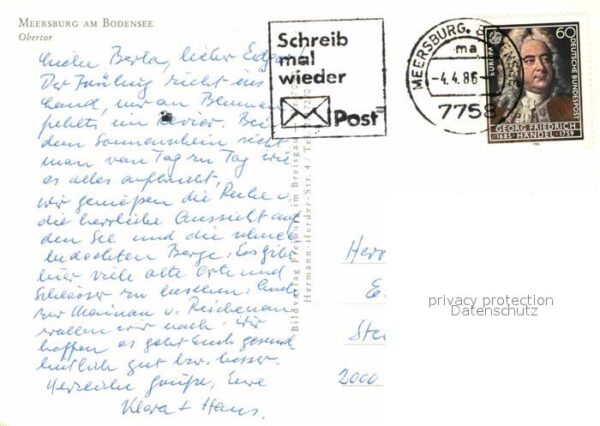 MEERSBURG AM BODENSEE
Obertor
Liebe Berta, lieber Edgar
Der Frühling zieht ins
Land, nur an Blumen
fehlts im Revier. Bei
dem Sonnenschein sieht
man von Tag zu Tag wie
es alles aufbricht,
wir genießen die Ruhe u.
die herrliche Aussicht auf
den See und die schnee
bedeckten Berge. Es gibt
hier viele alte Orte und
Schlösser zu besehen. Heute
zur Mainau u. Reichenau
wollen wir noch. Wir
hoffen es geht Euch gesund
heitlich gut bzw. besser.
Herzliche Grüße, Eure
Klara + Hans.
Bildverlag Freiburg im Breisgau
Hermann-Herder-Str. 4 / Te
Schreib
mal
wieder
Post
MEERSBURG, BODENSEE
ma
-4.4.86-
7758
60
EUROPA
DEUTSCHE BUNDESPOST
GEORG FRIEDRICH
1685 HÄNDEL 1759
Herr
E.
Ste
2000
privacy protection
Datenschutz